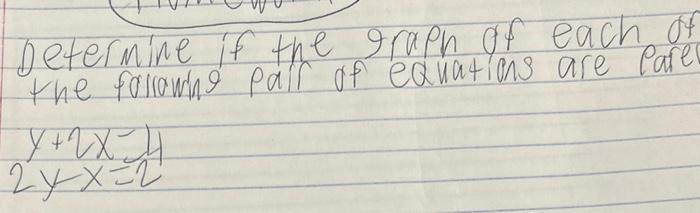 Determine if the graph of each of
the following pair of equations are
y+2x=4
2y-x=2